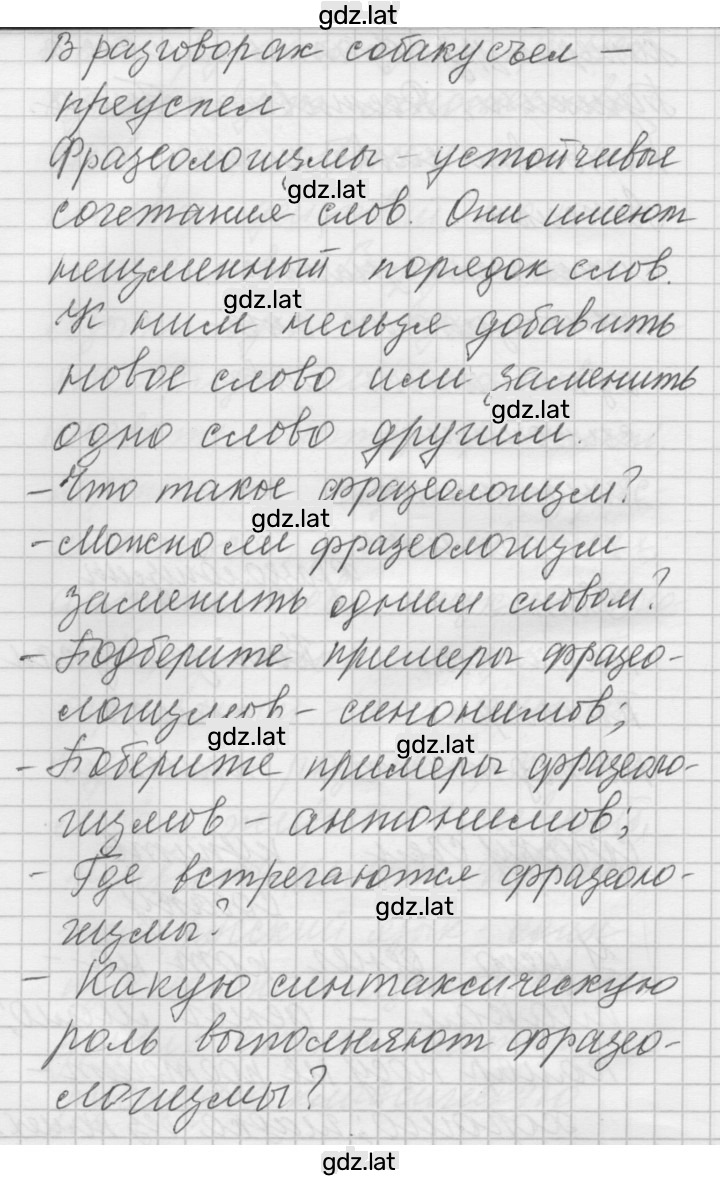 gdz.lat
В разговорах собаку съел —
преуспел
Фразеологизмы – устойчивые
gdz.lat
сочетания слов. Они имеют
неизменный порядок слов.
gdz.lat
К ним нельзя добавить
новое слово или заменить
gdz.lat
одно слово другим.
– Что такое фразеологизм?
gdz.lat
– Можно ли фразеологизм
заменить одним словом?
– Подберите примеры фразео-
логизмов – синонимов;
gdz.lat gdz.lat
– Поберите примеры фразеоло-
гизмов – антонимов;
– Где встрегаются фразеоло-
gdz.lat
гизмы?
– Какую синтаксическую
роль выполняют фразео-
логизмы?
gdz.lat